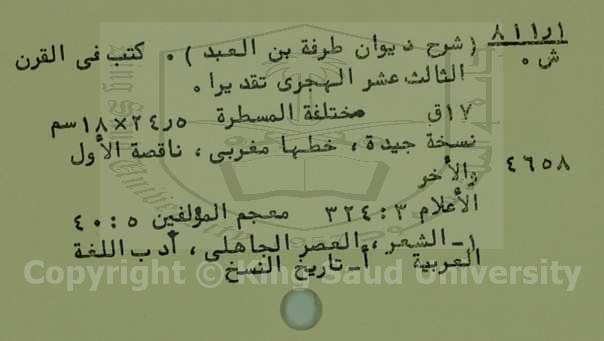 ٨١١ر١ (شرح ديوان طرفة بن العبد). كتب في القرن
ش. الثالث عشر الهجرى تقديرا.
١٧ق مختلفة المسطرة ٥ر٢٤×١٨سم
نسخة جيدة، خطها مغربى، ناقصة الأول ٤٦٥٨
والأخر
الأعلام ٣ : ٣٢٤ معجم المؤلفين ٥ : ٤٠
١- الشعر، العصر الجاهلى، أدب اللغة
العربية أ- تاريخ النسخ
Copyright © King Saud University